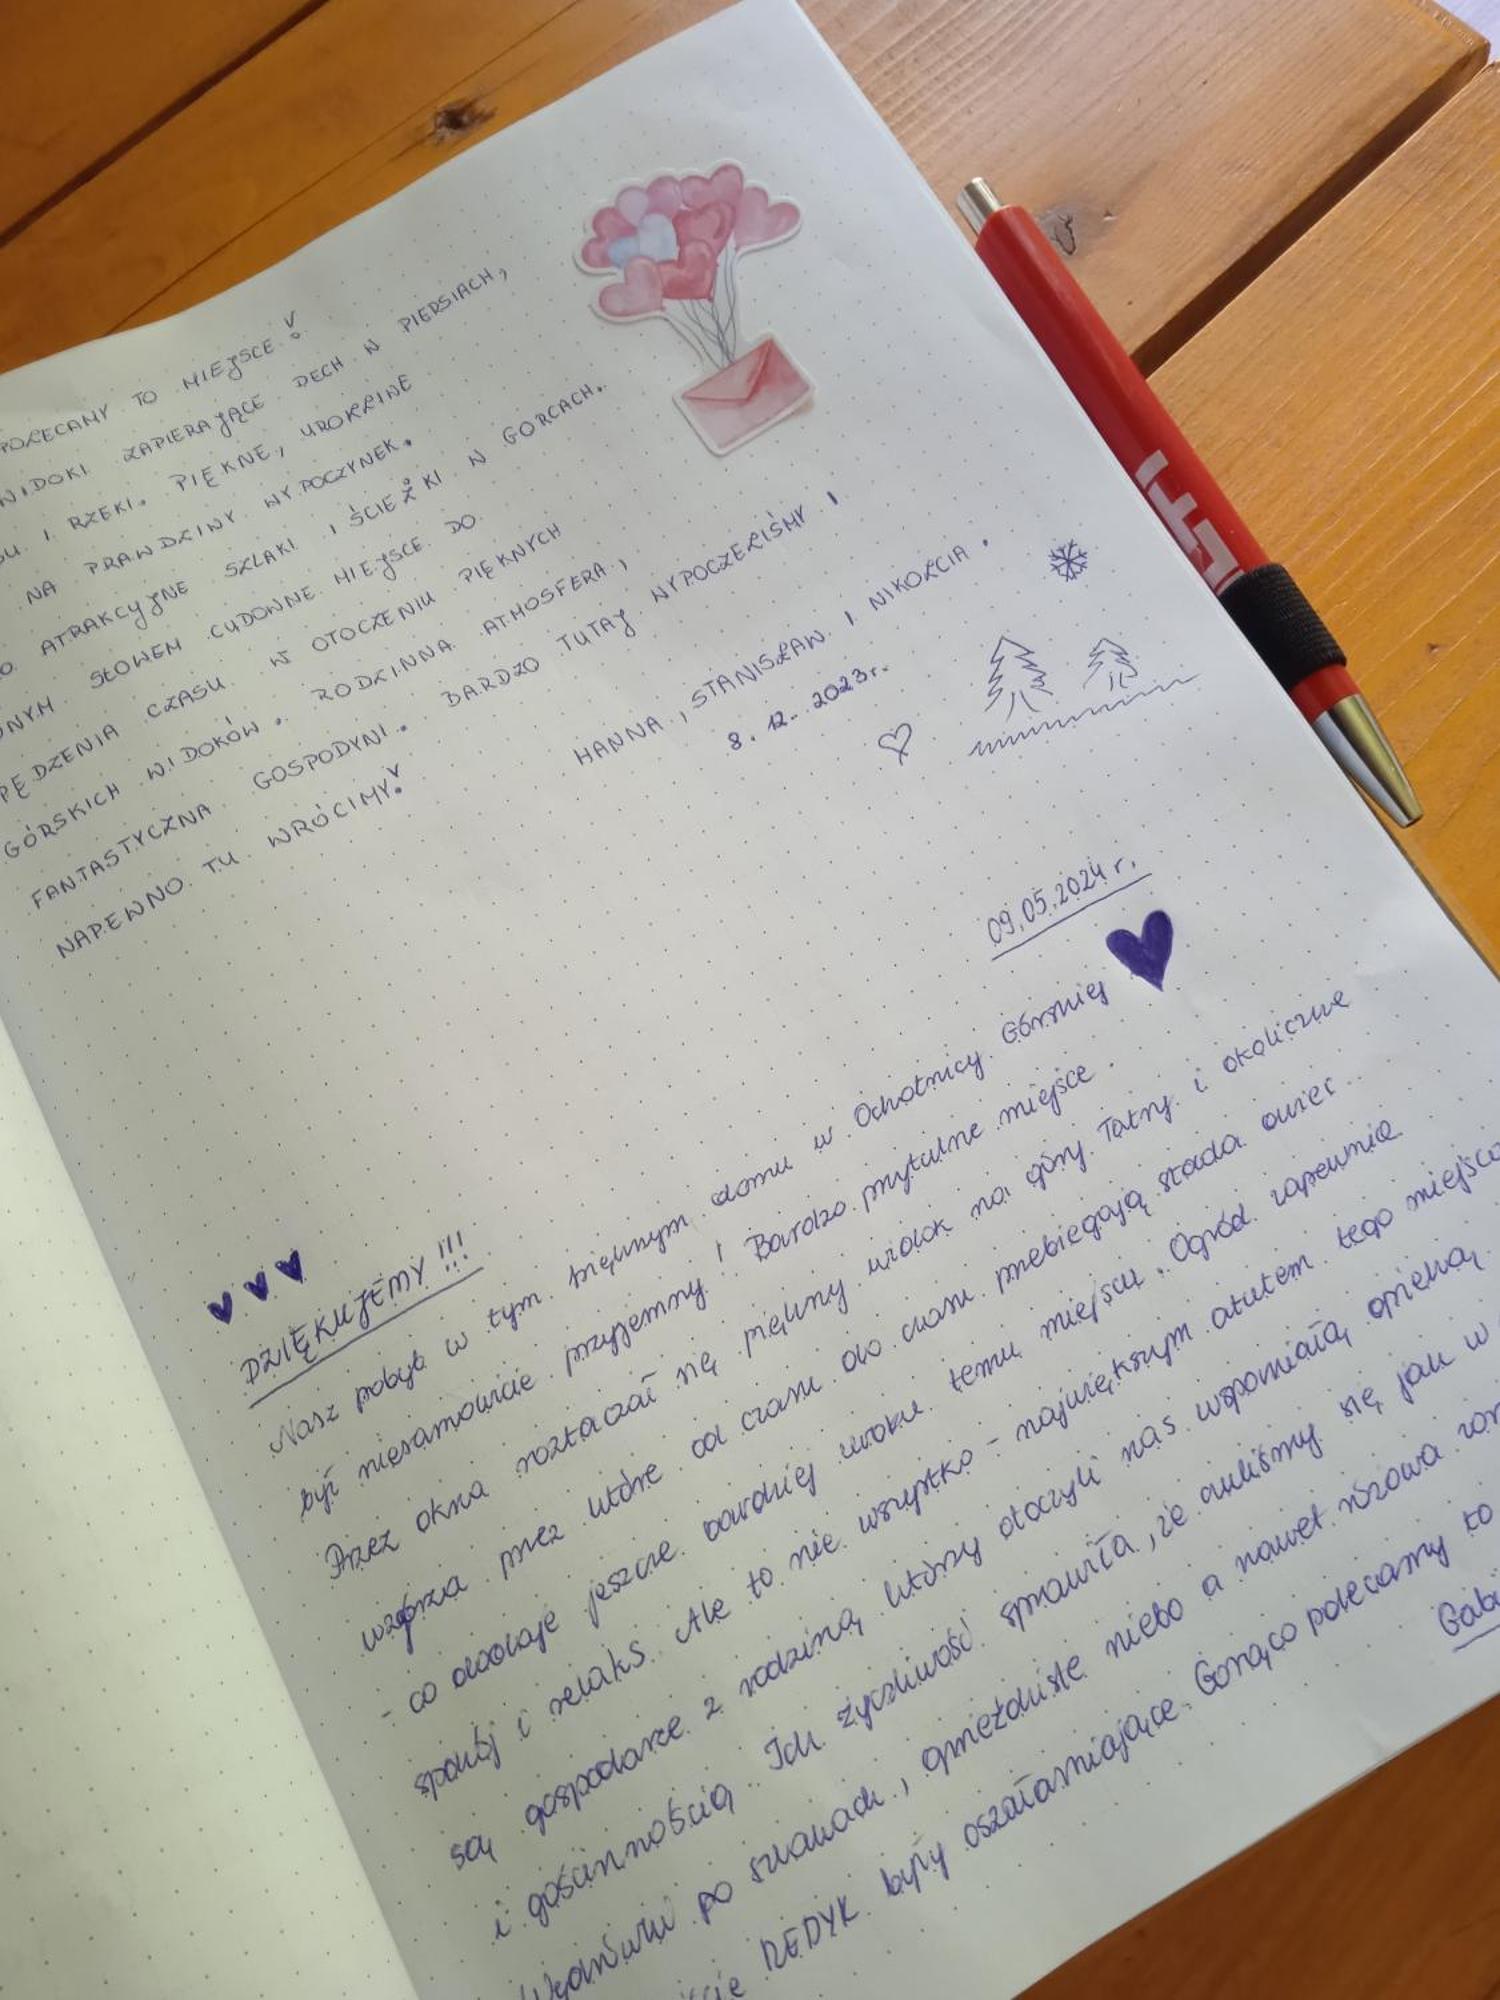 POLECAMY TO MIEJSCE!
WIDOKI ZAPIERAJĄCE DECH W PIERSIACH,
I RZEKI. PIĘKNE, UROKLIWE
NA PRAWDZIWY WYPOCZYNEK.
ATRAKCYJNE SZLAKI I ŚCIEŻKI W GORCACH.
SŁOWEM CUDOWNE MIEJSCE DO
PĘDZENIA CZASU W OTOCZENIU PIĘKNYCH
GÓRSKICH WIDOKÓW. RODZINNA ATMOSFERA,
FANTASTYCZNA GOSPODYNI. BARDZO TUTAJ WYPOCZELIŚMY I
NAPEWNO TU WRÓCIMY!
HANNA, STANISŁAW I NIKOLCIA.
8.12.2023r.
09.05.2024 r.
DZIĘKUJEMY!!!
Nasz pobyt w tym pięknym domu w Ochotnicy Górnej
był niesamowicie przyjemny! Bardzo przytulne miejsce.
Przez okna roztaczał się piękny widok na góry Tatry i okoliczne
wzgórza przez które od czasu do czasu przebiegają stada owiec
- co dodaje jeszcze bardziej uroku temu miejscu. Ogród zapewnia
spokój i relaks. Ale to nie wszystko - największym atutem tego miejsca
są gospodarze z rodziną, którzy otoczyli nas wspaniałą opieką
i gościnnością. Ich życzliwość sprawiła, że czuliśmy się jak w
Wędrówki po szlakach, gwieździste niebo a nawet różowa
REDYK były oszałamiające. Gorąco polecamy to
Gabi